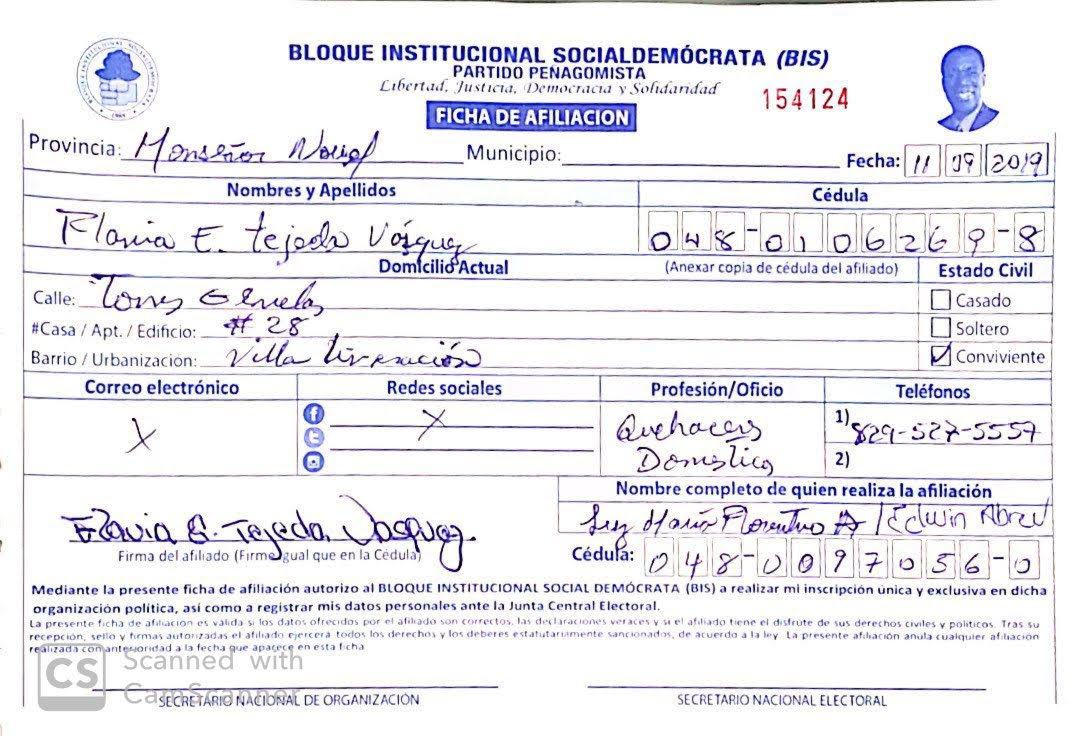 BLOQUE INSTITUCIONAL SOCIALDEMÓCRATA (BIS)
PARTIDO PEÑAGOMISTA
Libertad, Justicia, Democracia y Solidaridad
154124
FICHA DE AFILIACION
Provincia: Monseñor Nouel Municipio: Fecha: 11 09 2019
Nombres y Apellidos Cédula
Flavia E. Tejeda Vásquez 048-0106269-8
Domicilio Actual (Anexar copia de cédula del afiliado) Estado Civil
Calle: Torres Casado
#Casa / Apt. / Edificio: # 28 Soltero
Barrio / Urbanizacion: Villa Liveración Conviviente
Correo electrónico Redes sociales Profesión/Oficio Teléfonos
X X Quehaceres 1) 829-527-5557
Domestico 2)
Nombre completo de quien realiza la afiliación
Flavia E. Tejeda Vasquez Luz María Florentino A / Edwin Abreu
Firma del afiliado (Firme igual que en la Cédula) Cédula: 048-0097056-0
Mediante la presente ficha de afiliación autorizo al BLOQUE INSTITUCIONAL SOCIAL DEMÓCRATA (BIS) a realizar mi inscripción única y exclusiva en dicha
organización política, así como a registrar mis datos personales ante la Junta Central Electoral.
La presente ficha de afiliación es valida si los datos ofrecidos por el afiliado son correctos, las declaraciones veraces y si el afiliado tiene el disfrute de sus derechos civiles y politicos. Tras su
recepción, sello y firmas autorizadas el afiliado ejercerá todos los derechos y los deberes estatutariamente sancionados, de acuerdo a la ley. La presente afiliación anula cualquier afiliación
realizada con anterioridad a la fecha que aparece en esta ficha
CS Scanned with
CamScanner
SECRETARIO NACIONAL DE ORGANIZACIÓN SECRETARIO NACIONAL ELECTORAL